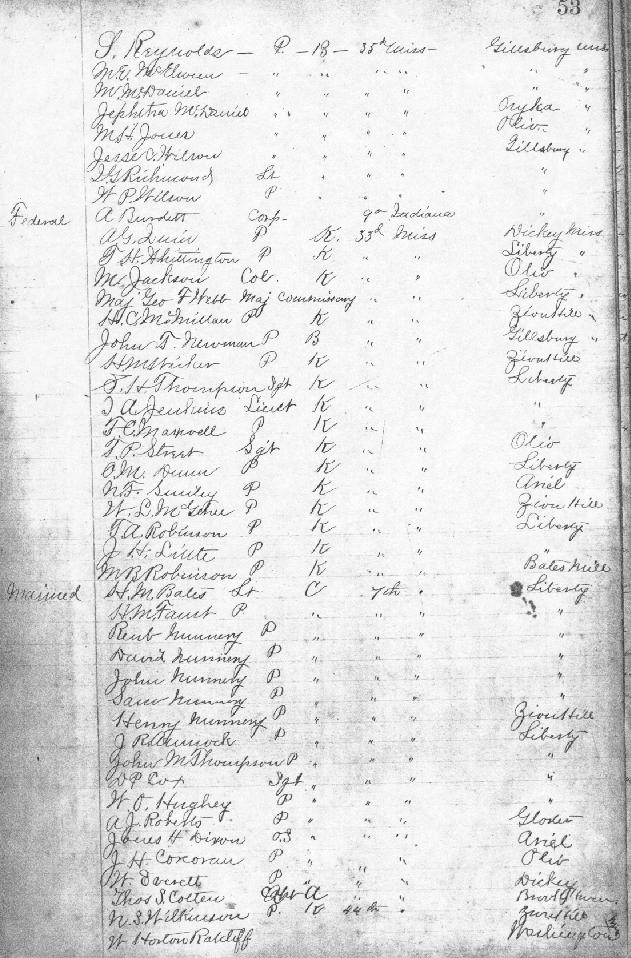 53
S. Reynolds — P. — B — 35th Miss — Gillsburg Miss
M. E. McElween — " " " " " "
M. McDaniel " " " " " "
Jephtha McDaniel " " " " Osyka "
M. H. Jones " " " " Olio "
Jesse C. Wilson " " " " Gillsburg "
Richmond Lt " " " "
W P Wilson P " " " "
Federal A Burdett Corp — 9th Indiana "
A. G. Quin P K. 33d Miss Dickey Miss
T. H. Whittington P K " " Liberty "
M. Jackson Col. K " " Olio "
Maj Geo F Webb Maj Commissary " " Liberty "
H. C. McMillan P K " " Zion Hill "
John T. Newman P B " " Gillsburg "
P K " " Zion Hill
T. H. Thompson Sgt K " " Liberty
J A Jenkins Lieut K " " "
T. C. Maxwell P K " "
T. P. Street Sgt K " " Olio
M. Dunn P K " " Liberty
N. F. Smiley P K " " Ariel
W. L. McGehee P K " " Zion Hill
J. A. Robinson P K " " Liberty
J H. P K " " "
M B Robinson P K " " Bates Mill
Maimed H. M. Bates Lt C 7th " Liberty
H. M. Faust P. " " " "
Reub Nunnery P " " " "
David Nunnery P " " " "
John Nunnery P " " " "
Sam Nunnery P " " " "
Henry Nunnery P " " " Zion Hill
J R P " " " Liberty
John M Thompson P " " " "
D P Cox Sgt " " " "
W. O. Hughey P " " " "
A. J. Roberts P " " " Gloster
James H Dixon O S " " " Ariel
J H Corcoran P " " " Olio
W. Everett P " " " Dickey
Thos S. Cotten Capt A " " Brookhaven
N. S. Wilkinson P. K 44th " Zion Hill
W Horton Ratcliff Washington